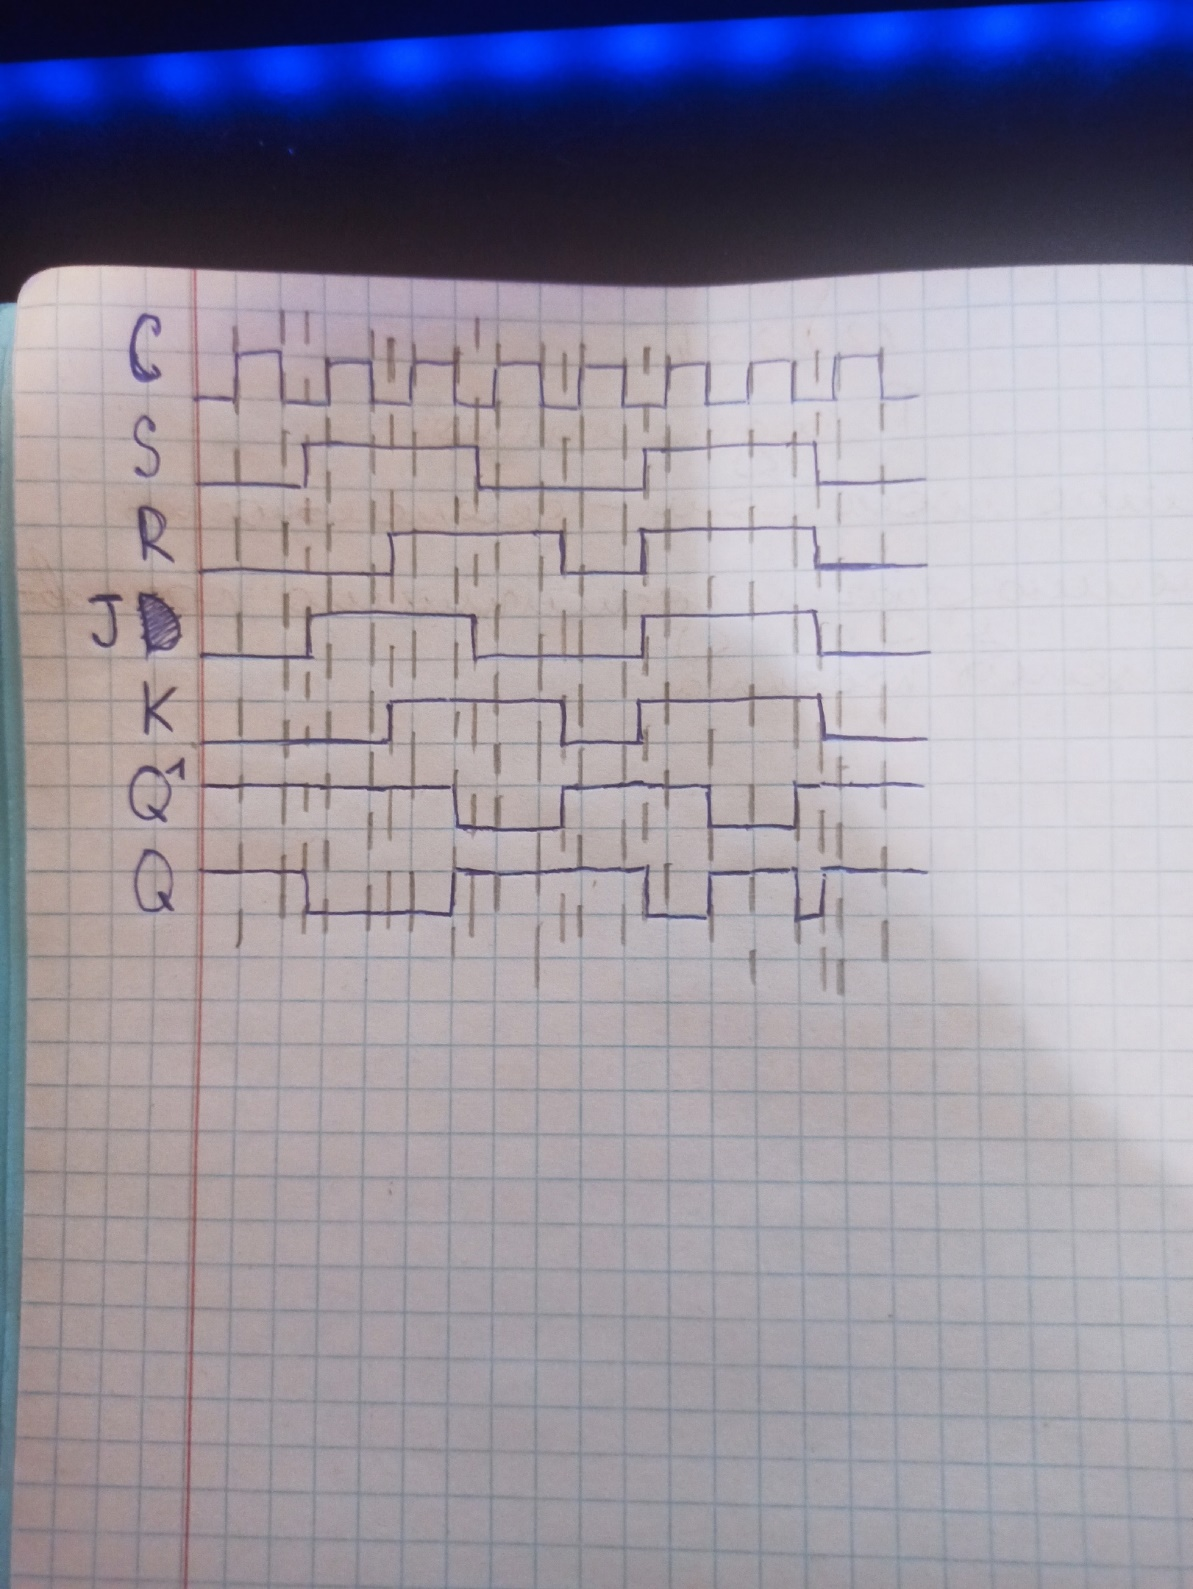 C
S
R
J
K
Q¹
Q